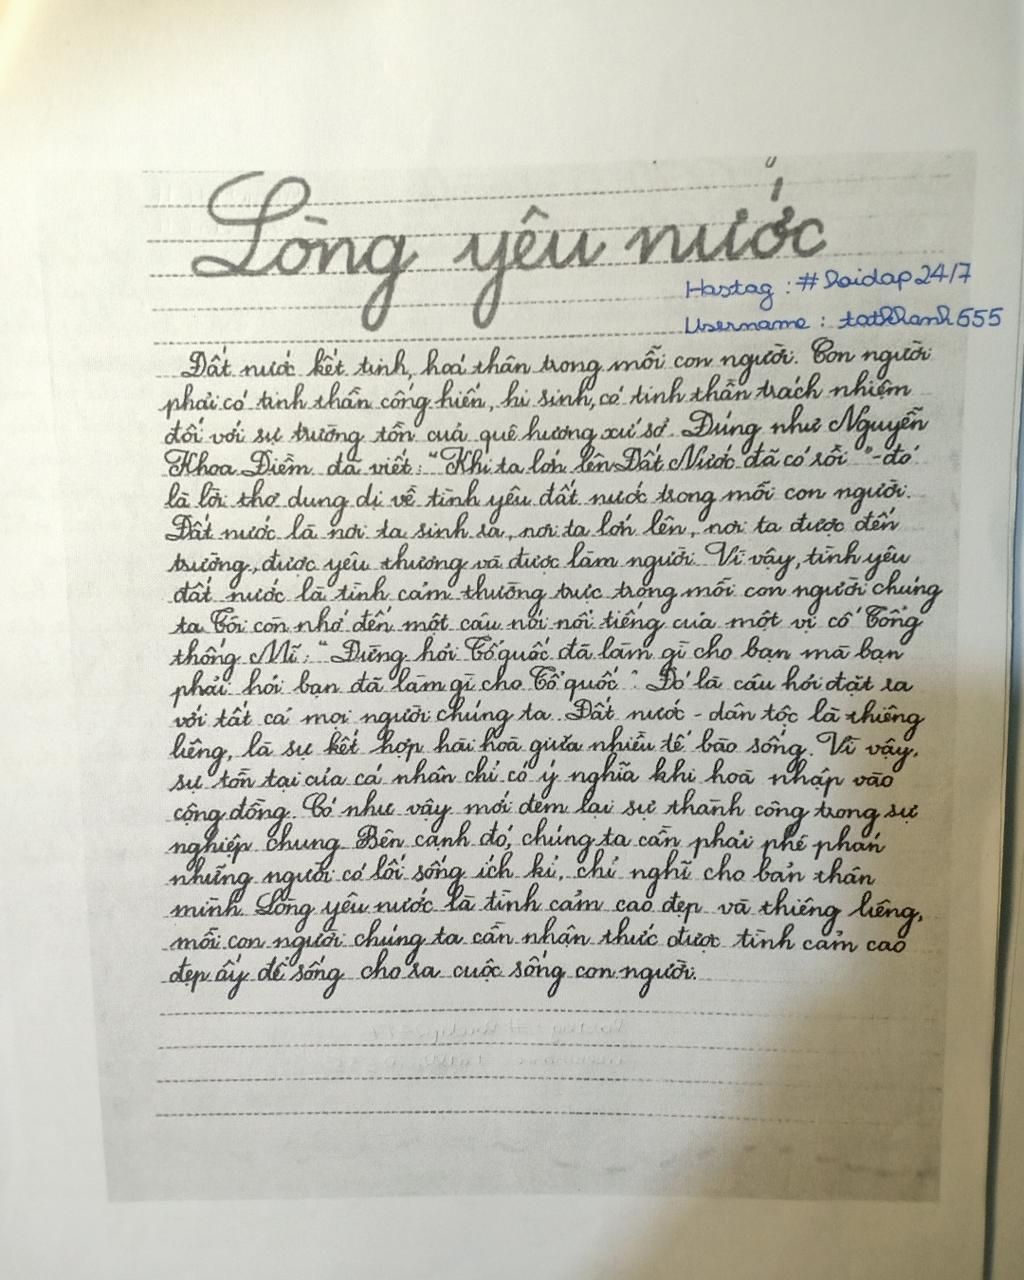 Lòng yêu nước
Hastag : #Hoidap24/7
Username : tathkhanh555
Đất nước kết tinh, hoá thân trong mỗi con người. Con người
phải có tinh thần cống hiến, hi sinh, có tinh thần trách nhiệm
đối với sự trường tồn của quê hương xứ sở. Đúng như Nguyễn
Khoa Điềm đã viết: "Khi ta lớn lên Đất Nước đã có rồi "- đó
là lời thơ dung dị về tình yêu đất nước trong mỗi con người.
Đất nước là nơi ta sinh ra, nơi ta lớn lên, nơi ta được đến
trường, được yêu thương và được làm người. Vì vậy, tình yêu
đất nước là tình cảm thường trực trong mỗi con người chúng
ta. Tôi còn nhớ đến một câu nói nổi tiếng của một vị cố Tổng
thống Mĩ: "Đừng hỏi Tổ quốc đã làm gì cho bạn mà bạn
phải hỏi bạn đã làm gì cho Tổ quốc". Đó là câu hỏi đặt ra
với tất cả mọi người chúng ta. Đất nước - dân tộc là thiêng
liêng, là sự kết hợp hài hoà giữa nhiều tế bào sống. Vì vậy,
sự tồn tại của cá nhân chỉ có ý nghĩa khi hoà nhập vào
cộng đồng. Có như vậy mới đem lại sự thành công trong sự
nghiệp chung. Bên cạnh đó, chúng ta cần phải phê phán
những người có lối sống ích kỉ, chỉ nghĩ cho bản thân
mình. Lòng yêu nước là tình cảm cao đẹp và thiêng liêng,
mỗi con người chúng ta cần nhận thức được tình cảm cao
đẹp ấy để sống cho ra cuộc sống con người.